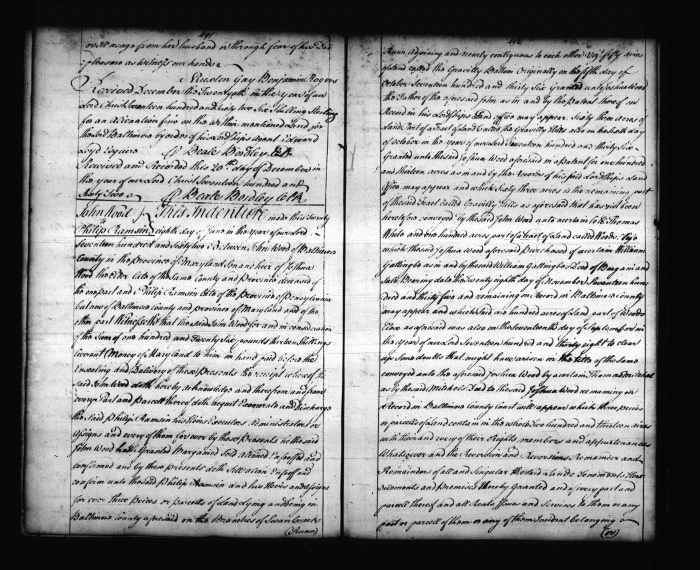 or Usage from her husband or through fear of his Dis
pleasure as witness our hands
Nicholas Gay Benjamin Rogers
Received December the Twentyeth in the year of our
Lord Christ Seventeen hundred and sixty two Six Shilling Sterling
for an alienation fine on the within mentioned Land
thousand Baltimore by order of his Lordships Agent Edward
Lloyd Esquire P Beale Bordley Clk
Received and Recorded this 20th day of December in
the year of our Lord Christ Seventeen hundred and
Sixty Two P Beale Bordley Clk
John Wood This Indenture made this Twenty
to
Philip Ramsin Eighth day of June in the year of our Lord
Seventeen hundred and sixty two Between John Wood of Baltimore
County in the province of Maryland Son and heir of Joshua
Wood the Elder late of the Same County and Province deceased of
the one part and Philip Ramsin late of the Province of Pensylvania
but now of Baltimore County and province of Maryland and of the
other part Witnesseth that the said John Wood for and in consideration
of the Sum of one hundred and Twenty Six pounds thirteen Shillings
Current Money of Maryland to him in hand paid before the
Ensealing and Delivery of these presents the receipt whereof the
said John Wood doth hereby acknowledge and thereof and from
every Part and Parcell thereof doth acquit Exonerate and Discharge
the said Philip Ramsin his Heirs Executors Administrators or
assigns and every of them for ever by these Presents he the said
John Wood hath Granted Bargained Sold aliened Enfeoffed and
confirmed and by these presents doth Sell alien Enfeoff and
confirm unto the said Philip Ramsin and his Heirs and assigns
for ever three peices or parcells of Land lying and being in
Baltimore County aforesaid on the Branches of Swan Creek
(Runn)
Runn Adjoining and nearly contiguous to each other Viz fifty acres
of Land called the Gravelly Bottom Originally on the fifth day of
October Seventeen hundred and thirty Six Granted unto Joshua Wood
the Father of the aforesaid John as in and by the Patent thereof on
Record in his Lordships Land Office may appear Sixty three acres of
Land Part of a Tract of Land Called the Gravelly Hills also on the sixth day
of October in the year of our Lord Seventeen hundred and thirty Six
Granted unto the said Joshua Wood aforesaid in a patent for one hundred
and thirteen acres as in and by the Records of his said Lordships Land
Office may appear and which Sixty three acres is the remaining part
of the said Tract called Gravelly Hills as aforesaid that has not been
heretofore conveyed by the said John Wood unto a certain Thomas
White and one hundred acres part of a Tract of Land called Woods
which the said Joshua Wood aforesaid purchased of a certain William
Gattingto as in and by the said William Gattingtos Deed of Bargain and
Sale Bearing date the Twenty eighth day of November Seventeen hun
dred and thirty five and remaining on Record in Baltimore County
may appear and which said one hundred acres of Land part of Woods
as aforesaid was also on the Seventeenth day of September in
the year of our Lord Seventeen hundred and thirty eight to clear
up Some doubts that might have arisen in the title of the same
conveyed unto the aforesaid Joshua Wood by a certain Thomas Mitchel
as by the said Mitchels Deed to the said Joshua Wood remaining on
Record in Baltimore County Court will appear which three peices
or parcells of Land contain in the whole Two hundred and thirteen acres
with their and every of their Rights members and appurtenances
Whatsoever and the Reversion and Reversions Remainder and
Remainders of all and Singular the said Lands Tenements Here
ditaments and Premises thereby Granted and of every part and
parcell thereof and all Rents Issues and Services to them or any
part or parcell of them or any of them Incident belonging
(or)